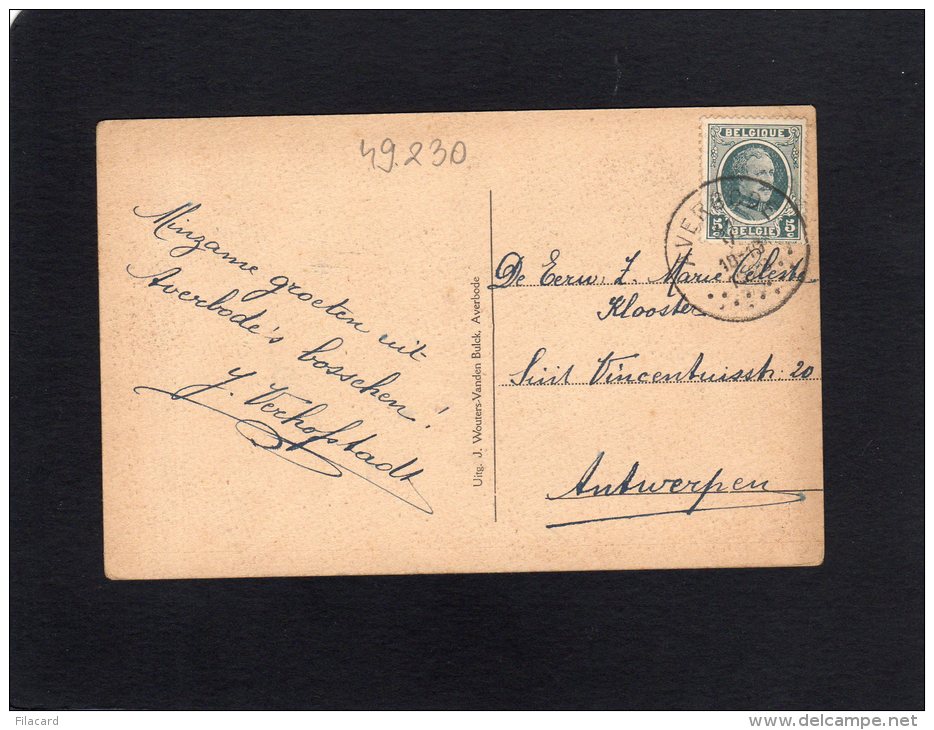 49.230
Minzame groeten uit
Averbode's bosschen!
J. Verhofstadt
Uitg. J. Wouters-Vanden Bulck, Averbode
BELGIQUE
5c 5c
BELGIE
AVERBODE
De Eerw. Z. Marie Celeste
Klooster
Sint Vincentiusstr. 20
Antwerpen
Filacard
delcampe.net